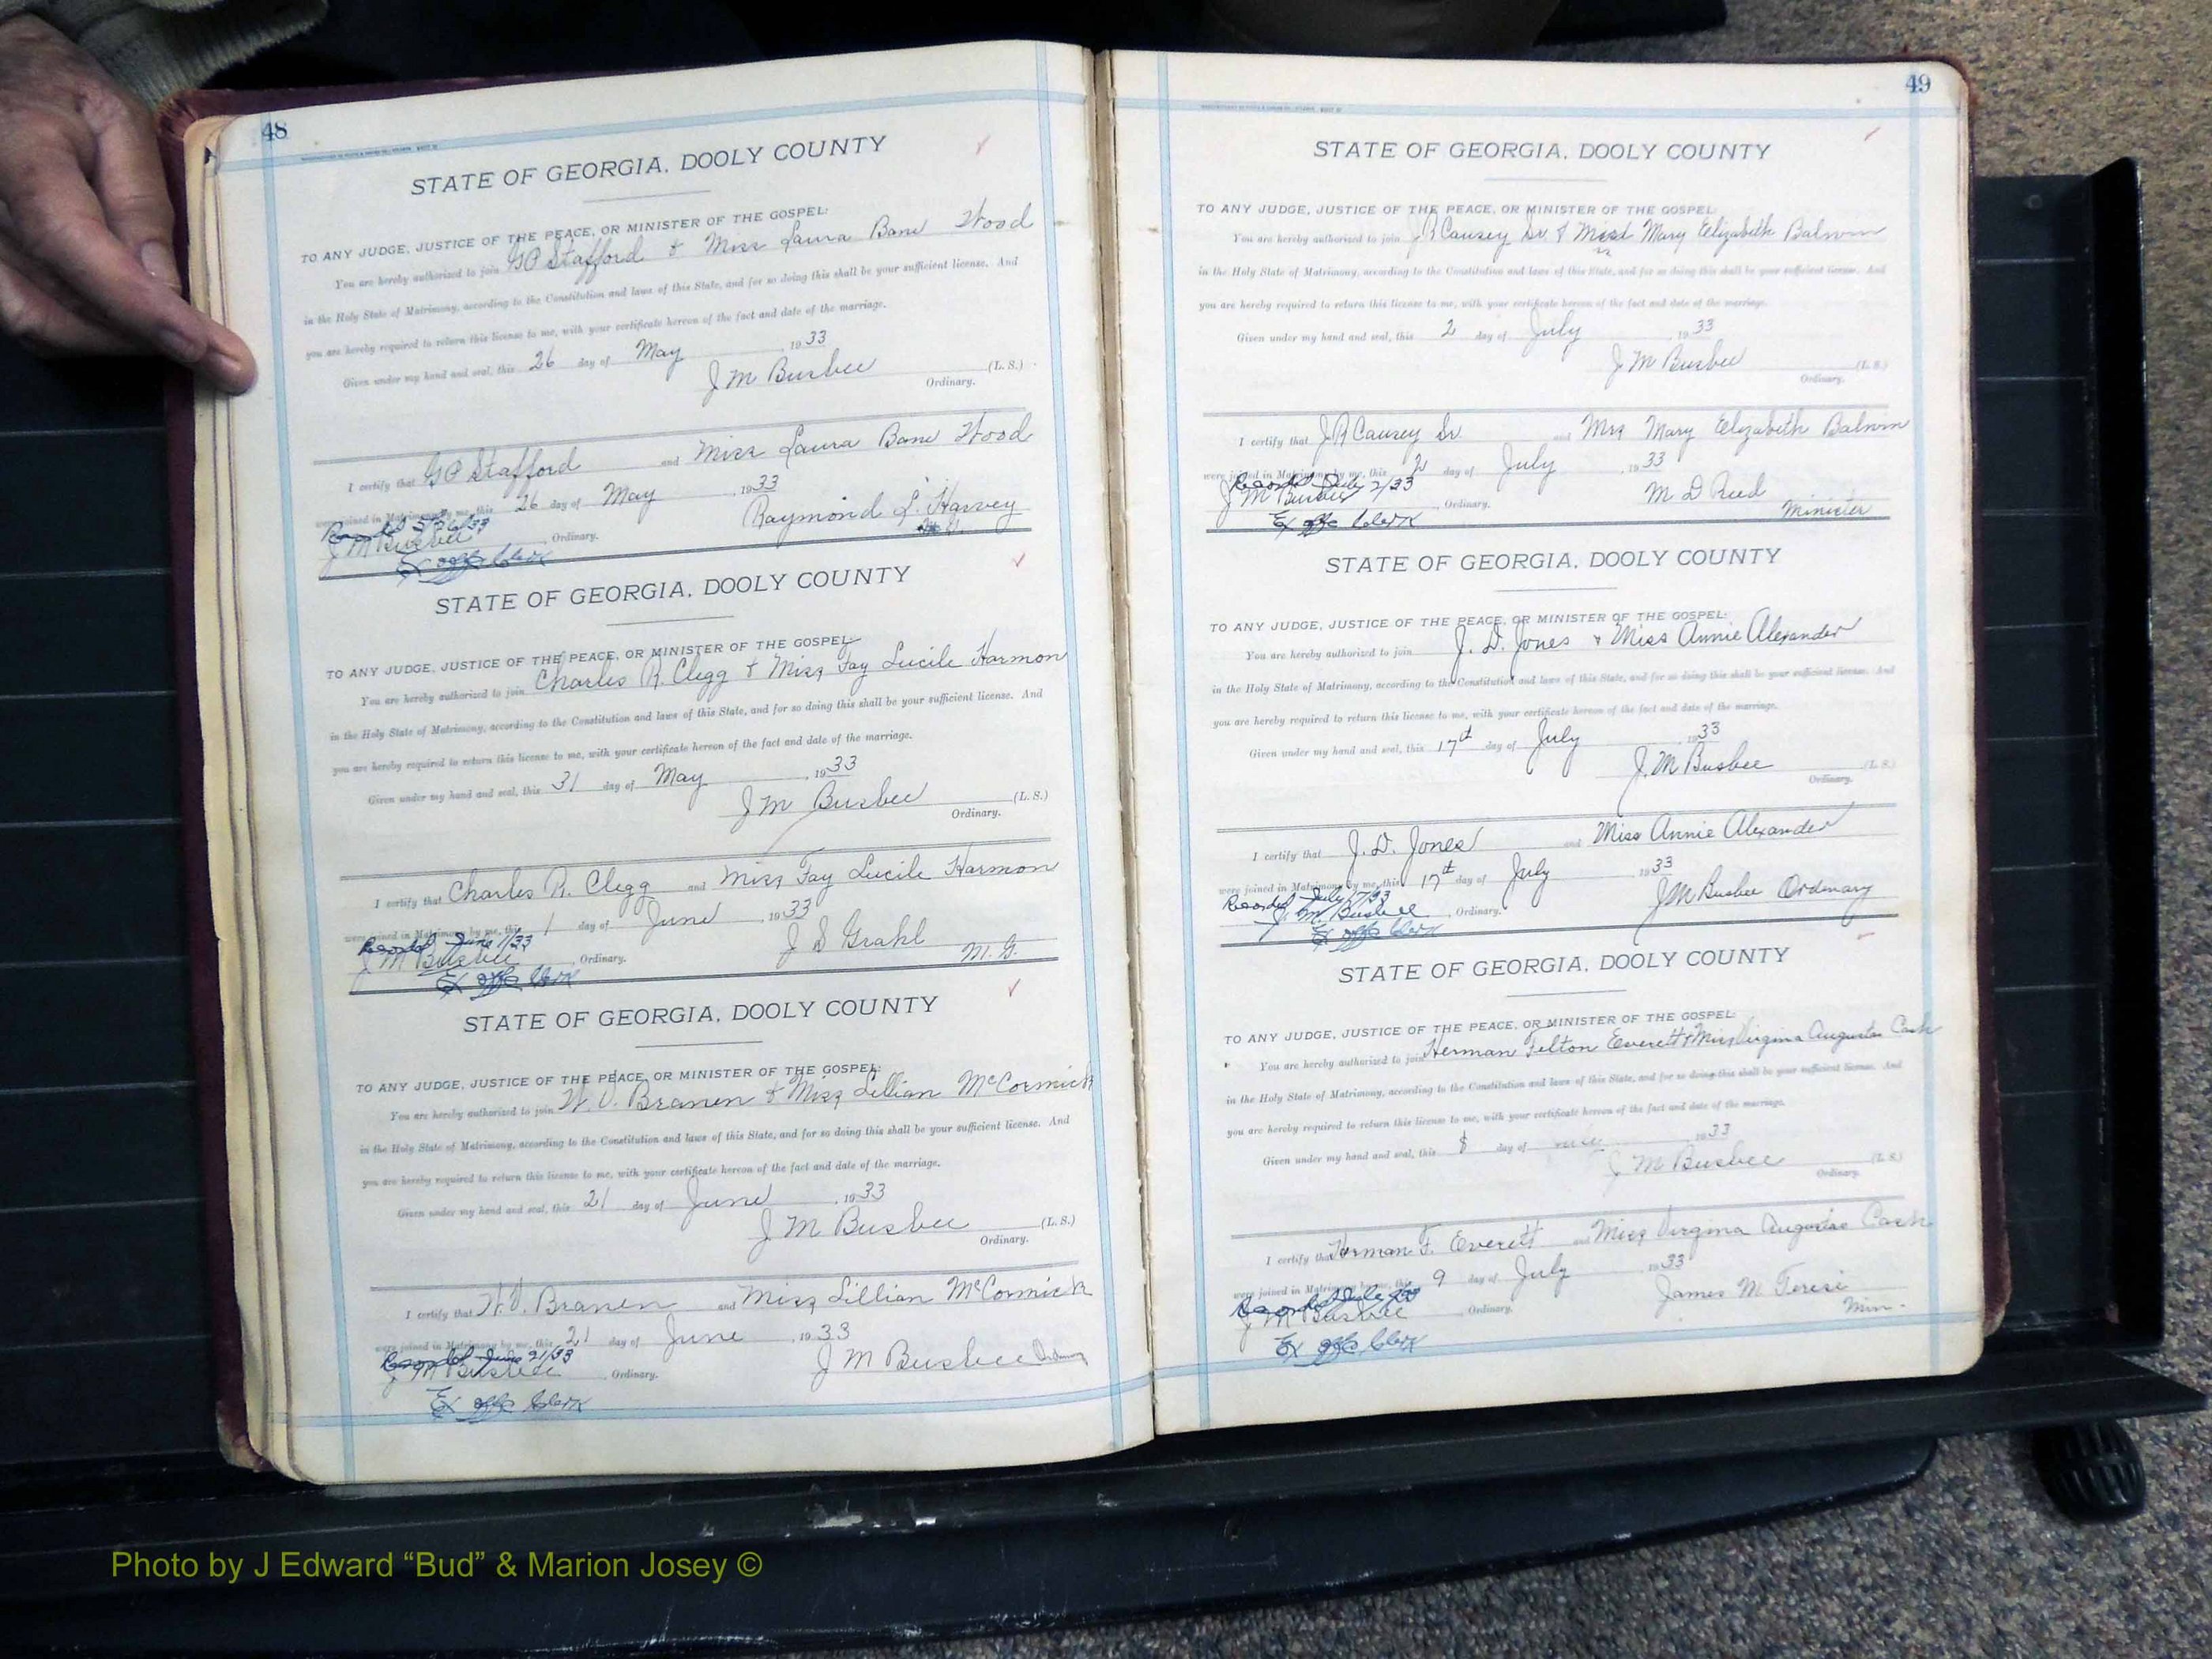 48
STATE OF GEORGIA, DOOLY COUNTY
TO ANY JUDGE, JUSTICE OF THE PEACE, OR MINISTER OF THE GOSPEL:
You are hereby authorized to join GP Stafford & Miss Laura Bane Wood
in the Holy State of Matrimony, according to the Constitution and laws of this State, and for so doing this shall be your sufficient license. And
you are hereby required to return this license to me, with your certificate hereon of the fact and date of the marriage.
Given under my hand and seal, this 26 day of May, 1933
J M Busbee (L. S.)
Ordinary.
I certify that GP Stafford and Miss Laura Bane Wood
were joined in Matrimony by me, this 26 day of May, 1933
Recorded 5/26/33
J M Busbee, Ordinary. Raymond L. Harvey
Ex offo Clerk
STATE OF GEORGIA, DOOLY COUNTY
TO ANY JUDGE, JUSTICE OF THE PEACE, OR MINISTER OF THE GOSPEL:
You are hereby authorized to join Charles R. Clegg & Miss Fay Lucile Harmon
in the Holy State of Matrimony, according to the Constitution and laws of this State, and for so doing this shall be your sufficient license. And
you are hereby required to return this license to me, with your certificate hereon of the fact and date of the marriage.
Given under my hand and seal, this 31 day of May, 1933
J M Busbee (L. S.)
Ordinary.
I certify that Charles R. Clegg and Miss Fay Lucile Harmon
were joined in Matrimony by me, this 1 day of June, 1933
Recorded June 1/33
J M Busbee, Ordinary. J S Grahl M. G.
Ex offo Clerk
STATE OF GEORGIA, DOOLY COUNTY
TO ANY JUDGE, JUSTICE OF THE PEACE, OR MINISTER OF THE GOSPEL:
You are hereby authorized to join W. V. Branen & Miss Lillian McCormick
in the Holy State of Matrimony, according to the Constitution and laws of this State, and for so doing this shall be your sufficient license. And
you are hereby required to return this license to me, with your certificate hereon of the fact and date of the marriage.
Given under my hand and seal, this 21 day of June, 1933
J M Busbee (L. S.)
Ordinary.
I certify that W. V. Branen and Miss Lillian McCormick
were joined in Matrimony by me, this 21 day of June, 1933
Recorded June 21/33
J M Busbee, Ordinary. J M Busbee Ordinary
Ex offo Clerk
49
STATE OF GEORGIA, DOOLY COUNTY
TO ANY JUDGE, JUSTICE OF THE PEACE, OR MINISTER OF THE GOSPEL:
You are hereby authorized to join J R Causey Sr. & Mrs Mary Elizabeth Balwin
in the Holy State of Matrimony, according to the Constitution and laws of this State, and for so doing this shall be your sufficient license. And
you are hereby required to return this license to me, with your certificate hereon of the fact and date of the marriage.
Given under my hand and seal, this 2 day of July, 1933
J M Busbee (L. S.)
Ordinary.
I certify that J R Causey Sr. and Mrs Mary Elizabeth Balwin
were joined in Matrimony by me, this 2 day of July, 1933
Recorded July 2/33
J M Busbee, Ordinary. M D Reed
Minister
Ex offo Clerk
STATE OF GEORGIA, DOOLY COUNTY
TO ANY JUDGE, JUSTICE OF THE PEACE, OR MINISTER OF THE GOSPEL:
You are hereby authorized to join J. D. Jones & Miss Annie Alexander
in the Holy State of Matrimony, according to the Constitution and laws of this State, and for so doing this shall be your sufficient license. And
you are hereby required to return this license to me, with your certificate hereon of the fact and date of the marriage.
Given under my hand and seal, this 17th day of July 1933
J. M Busbee (L. S.)
Ordinary.
I certify that J. D. Jones and Miss Annie Alexander
were joined in Matrimony by me, this 17th day of July 1933
Recorded July 17/33
J. M. Busbee, Ordinary. J M Busbee Ordinary
Ex offo Clerk
STATE OF GEORGIA, DOOLY COUNTY
TO ANY JUDGE, JUSTICE OF THE PEACE, OR MINISTER OF THE GOSPEL:
You are hereby authorized to join Herman Felton Everett & Miss Virgina Augustas Cash
in the Holy State of Matrimony, according to the Constitution and laws of this State, and for so doing this shall be your sufficient license. And
you are hereby required to return this license to me, with your certificate hereon of the fact and date of the marriage.
Given under my hand and seal, this 8 day of July 1933
J M Busbee (L. S.)
Ordinary.
I certify that Herman F. Everett and Miss Virgina Augustas Cash
were joined in Matrimony by me, this 9 day of July 1933
Recorded July
J M Busbee, Ordinary. James M. Teresi
Min.
Ex offo Clerk
Photo by J Edward “Bud” & Marion Josey ©